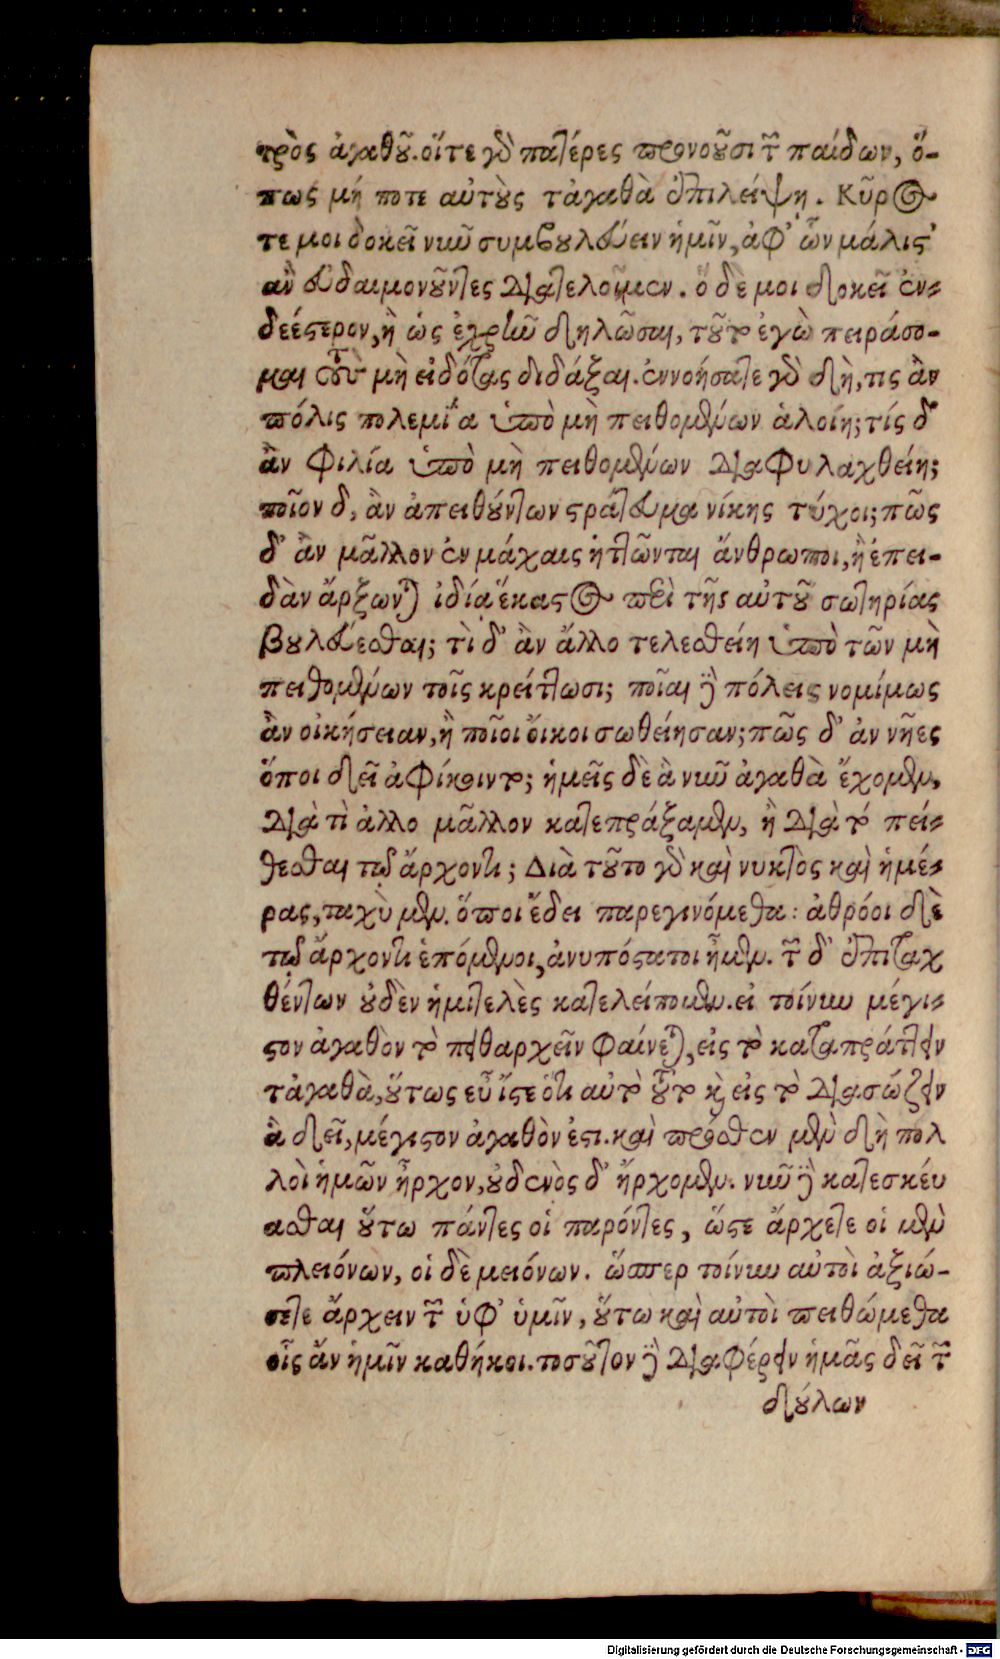 τρὸς ἀγαθοῦ. οἵ τε γὸ πατέρες προνοοῦσι τ̃ παίδων, ὅ-
πως μή ποτε αὐτοὺς τἀγαθὰ ἐπιλείψῃ. Κῦρος
τέ μοι δοκεῖ νῦν συμβουλεύειν ἡμῖν, ἀφ’ ὧν μάλιστ’
ἂν εὐδαιμονοῦντες διατελοῖμεν. ὃ δέ μοι δοκεῖ ἐν-
δεέστερον, ἢ ὡς ἐχρῆν δηλῶσαι, τοῦτο ἐγὼ πειράσο-
μαι τοὺς μὴ εἰδότας διδάξαι. ἐννοήσατε γὸ δὴ, τίς ἂν
πόλις πολεμία ὑπὸ μὴ πειθομένων ἁλοίη; τίς δ’
ἂν φιλία ὑπὸ μὴ πειθομένων διαφυλαχθείη;
ποῖον δ, ἂν ἀπειθούντων στράτευμα νίκης τύχοι; πῶς
δ’ ἂν μᾶλλον ἐν μάχαις ἡττῶνται ἄνθρωποι, ἢ ἐπει-
δὰν ἄρξωνται ἰδίᾳ ἕκαστος περὶ τῆς αὐτοῦ σωτηρίας
βουλεύεσθαι; τὶ δ’ ἂν ἄλλο τελεσθείη ὑπὸ τῶν μὴ
πειθομένων τοῖς κρείττωσι; ποῖαι δὲ πόλεις νομίμως
ἂν οἰκήσειαν, ἢ ποῖοι οἴκοι σωθείησαν; πῶς δ’ ἀν νῆες
ὅποι δεῖ ἀφίκοιντο; ἡμεῖς δὲ ἃ νῦν ἀγαθὰ ἔχομεν,
διὰ τὶ ἀλλο μᾶλλον κατεπράξαμεν, ἢ διὰ τὸ πεί-
θεσθαι τῷ ἄρχοντι; Διὰ τοῦτο γὸ καὶ νυκτὸς καὶ ἡμέ-
ρας, ταχὺ μὲν. ὅποι ἔδει παρεγινόμεθα: ἀθρόοι δὲ
τῷ ἄρχοντι ἑπόμενοι, ἀνυπόστατοι ἦμεν. τ̃ δ’ ἐπιταχ
θέντων οὐδὲν ἡμιτελὲς κατελείπομεν. εἰ τοίνυν μέγι-
στον ἀγαθὸν τὸ πειθαρχεῖν φαίνεται, εἰς τὸ καταπράττειν
τἀγαθὰ, οὕτως εὖ ἴστε ὅτι αὐτὸ τοῦτο καὶ εἰς τὸ διασώζειν
ἃ δεῖ, μέγιστον ἀγαθὸν ἐστι. καὶ πρόσθεν μὲν δὴ πολ
λοὶ ἡμῶν ἦρχον, οὐδενὸς δ’ ἤρχομεν. νῦν δὲ κατεσκεύ
ασθαι οὕτω πάντες οἱ παρόντες, ὥστε ἄρχετε οἱ μὲν
πλειόνων, οἱ δὲ μειόνων. ὥσπερ τοίνυν αὐτοὶ ἀξιώ-
σετε ἄρχειν τ̃ ὑφ’ ὑμῖν, οὕτω καὶ αὐτοὶ πειθώμεθα
οἷς ἄν ἡμῖν καθήκοι. τοσοῦτον δὲ διαφέρειν ἡμᾶς δεῖ τ̃
δούλων
Digitalisierung gefördert durch die Deutsche Forschungsgemeinschaft - DFG